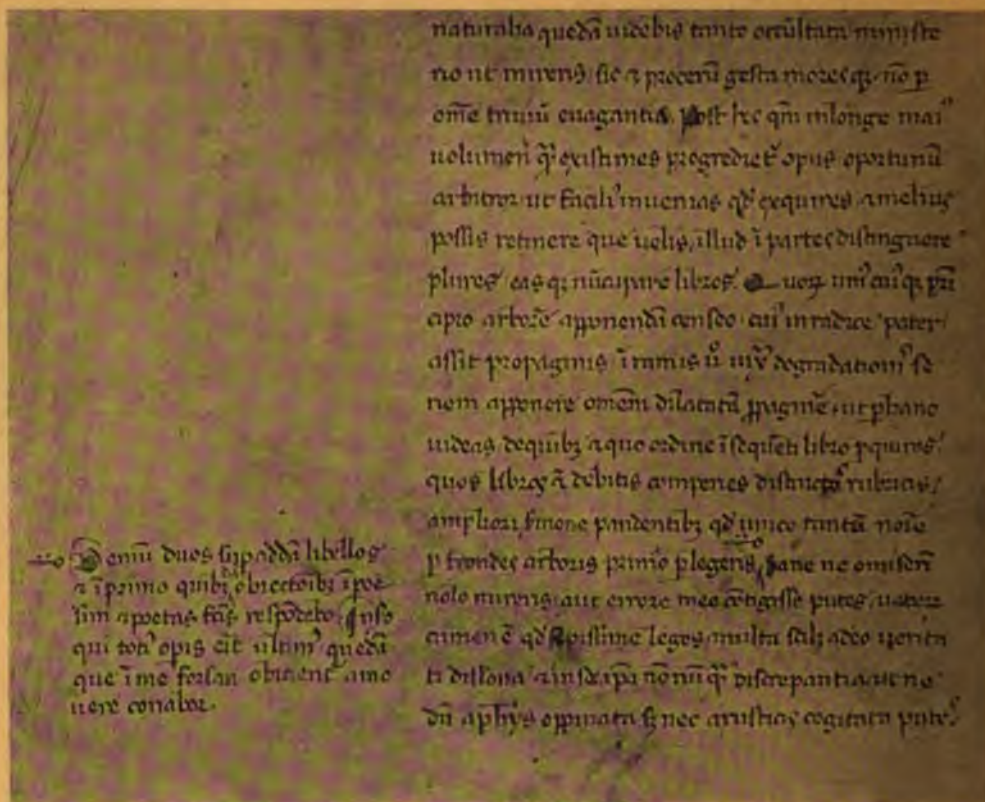 naturalia quedã uidebis tanto occultata ministe
rio ut mireris, sic ⁊ procerũ gesta moresqꝫ nõ ꝑ
omẽ triuiũ euagantia. Post hec qm̃ in longe maiꝰ
uolumen q̃ existimes progrediet᷑ opus oportunũ
arbitror ut faciliꝰ inuenias qd̕ exquires ⁊ melius
possis retinere que uelis, illud ĩ partes distinguere
plures easqꝫ nũcupare libros. Quoꝝ uniꝰcuiꝰqꝫ prĩ
cipio arborẽ apponendã censeo cuiꝰ in radice pater
assit propaginis, ĩ ramis u͛o degradationꝰ se
riem apponere omẽm dilatatã ꝓpaginẽ, ut ꝑ hanc
uideas de quibꝫ ⁊ quo ordine ĩ sequẽti libro ꝑquiras.
quos libros ã debitis comperies distinctos rubricis,
ampliori ẜmone pandentibꝫ qd̕ unico tantũ noĩe
ꝑ frondes arboris primo ꝑlegeris, sane ne omiserĩ
nolo mireris, aut errore meo cõtigisse putes, ueterũ
crimen ẽ qd̕ sepissime leges, multa scilꝫ adeo uerita
ti dissona ⁊ in se ipsa nõ nũq̃ discrepantia, ut ne
dũ a phỹs oppinata sꝫ nec a rusticis cogitata putes.
Demũ duos suꝑaddã libellos
⁊ ĩ primo quibꝫdã obiectõibꝫ ĩ poe
sim ⁊ poetas fc̃is respõdebo. In sc̃o
qui totiꝰ opis erit ultimꝰ quedã
que ĩ me forsan obicient᷑ amo
uere conabor.